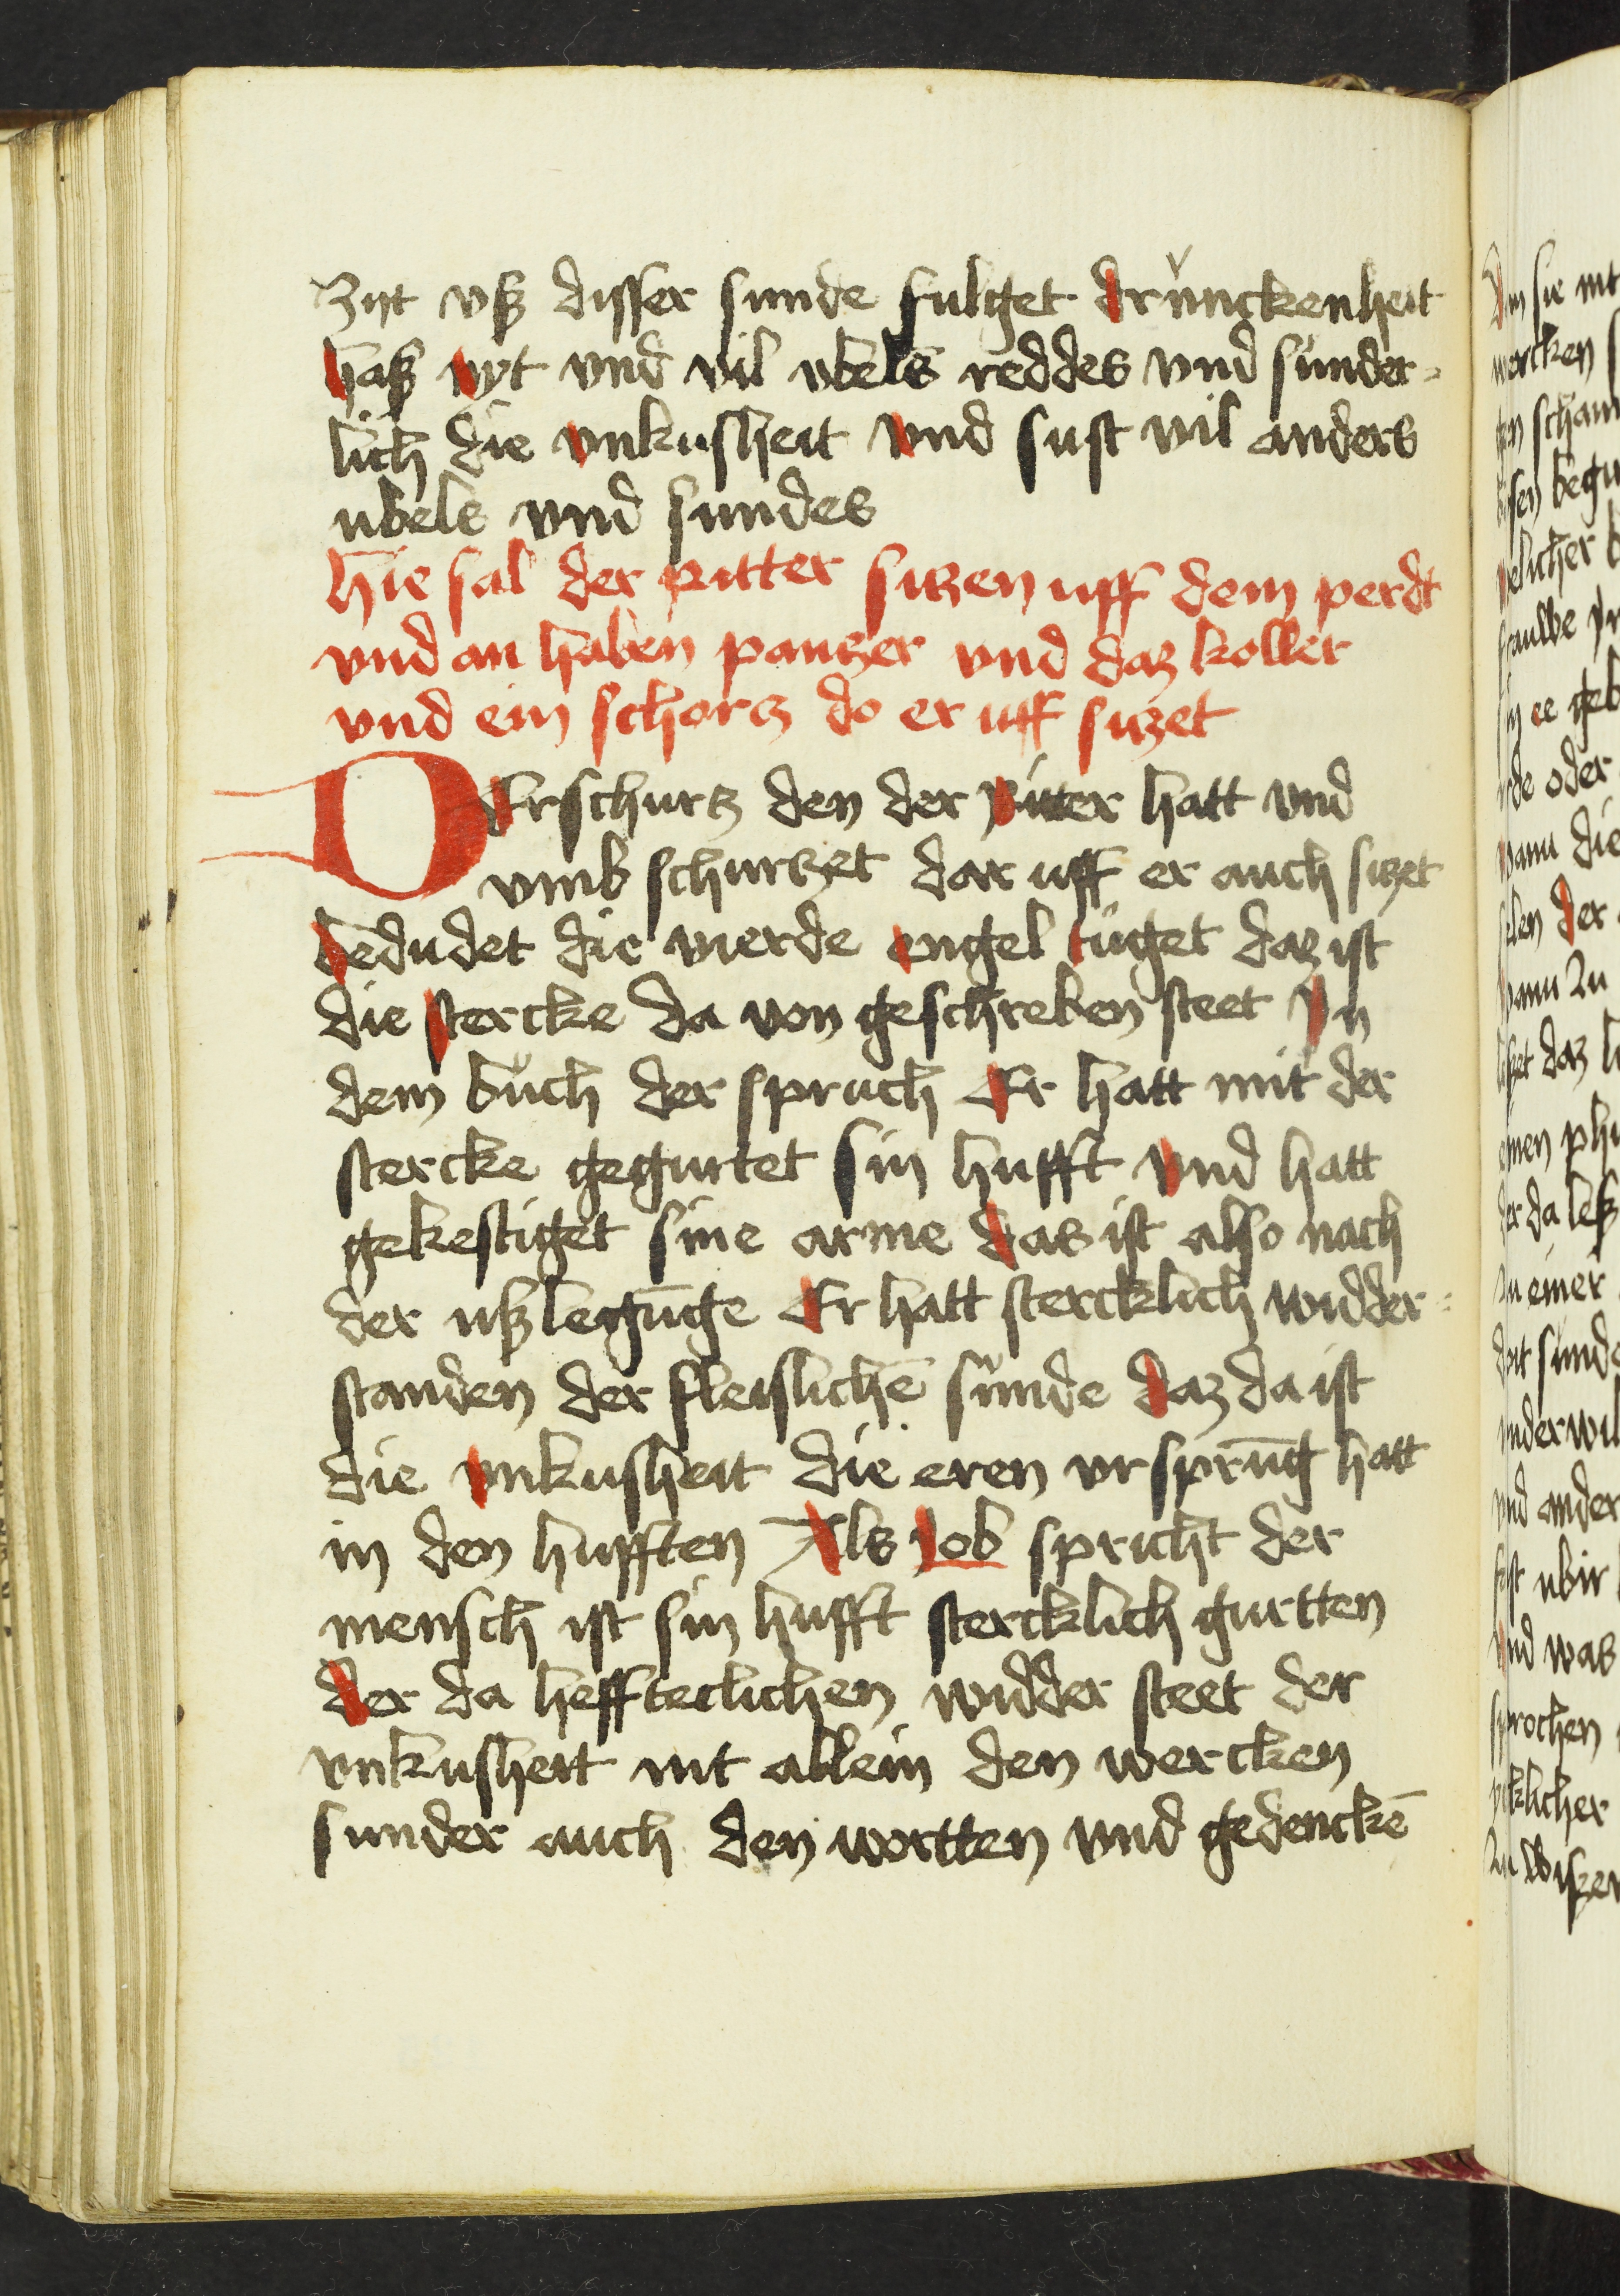 Zijt vß disser sunde fulget drůnckenheit
haß nyt vnd vil vbels reddes vnd sunder=
lich die vnkusheit vnd sust vil anders
ubels vnd sundes
hie sal der ritter sitzen uff dem perdt
vnd an haben pantzer vnd daz koller
vnd ein schortz do er uff sitzet
DEr schurtz den der Ritter hatt vnd
vmb schurtzet dar uff er auch sitzet
bedudet die vierde engel tuget daz ist
die stercke da von geschreben steet In
dem bůch der spruch Er hatt mit der
stercke gegurtet sin hufft vnd hatt
gekestiget sine arme das ist also nach
der ußlegūge Er hatt stercklich widder=
standen der fleislichē sunde daz da ist
die vnkusheit die eren vrsprūg hatt
in den hufften Als Iob spricht der
mensch ist sin hufft stercklich gurtten
der da heffteclichen widder steet der
vnkusheit nit allein den wercken
sunder auch den wortten vnd gedenckē